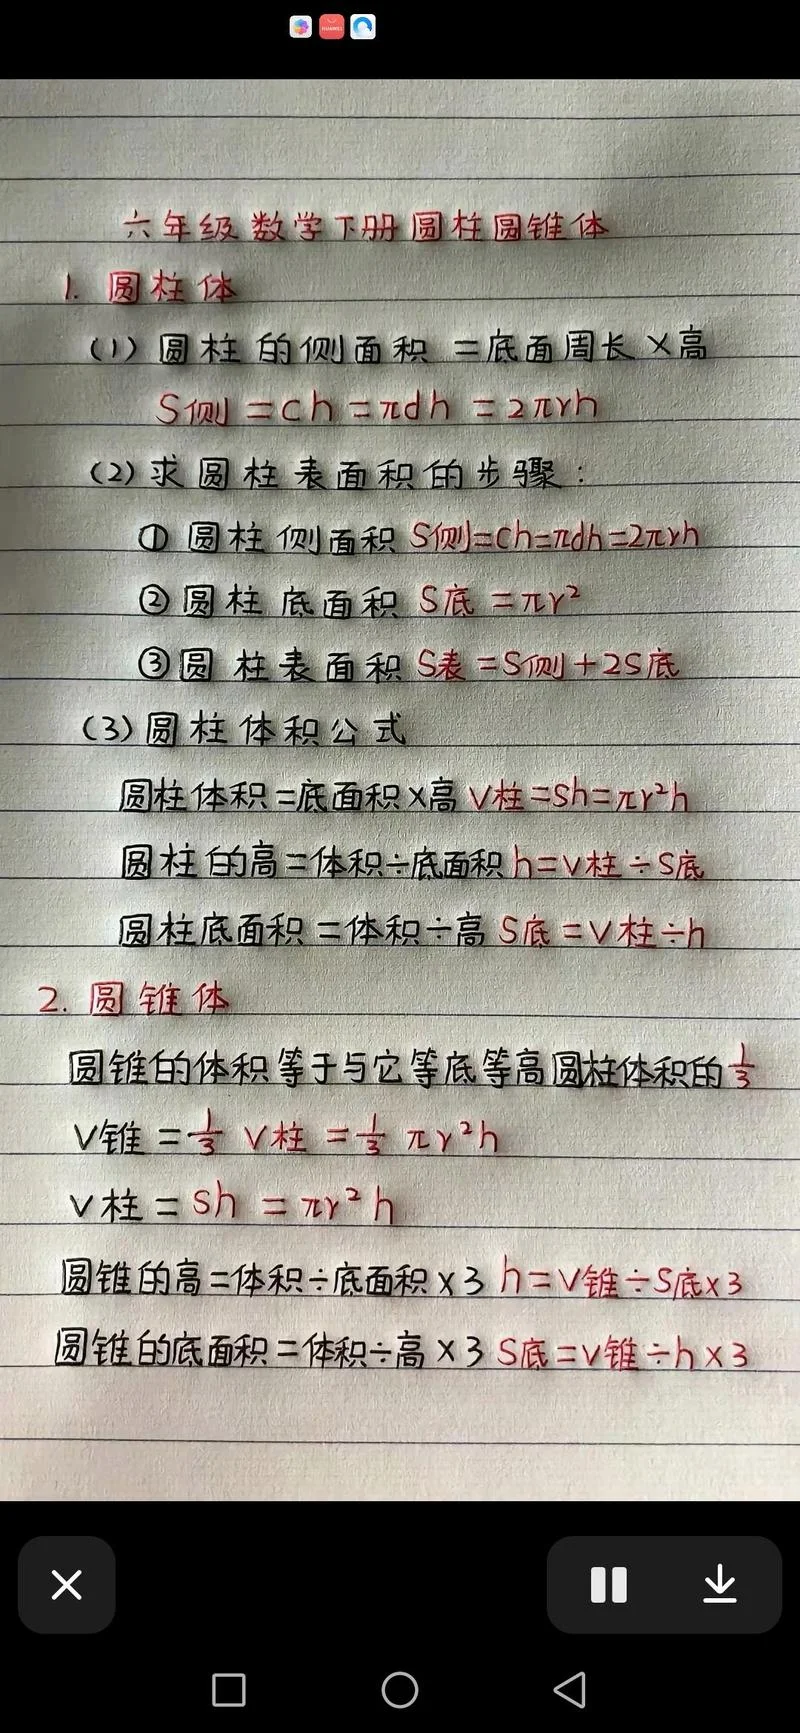 HUAWEI
六年级数学下册圆柱圆锥体
1. 圆柱体
(1) 圆柱的侧面积 =底面周长×高
S侧 =ch =πdh =2πrh
(2)求圆柱表面积的步骤:
① 圆柱侧面积 S侧=ch=πdh=2πrh
②圆柱底面积 S底 =πr²
③圆柱表面积 S表=S侧+2S底
(3)圆柱体积公式
圆柱体积=底面积×高 V柱=sh=πr²h
圆柱的高=体积÷底面积 h=V柱÷S底
圆柱底面积=体积÷高 S底=V柱÷h
2. 圆锥体
圆锥的体积等于与它等底等高圆柱体积的1/3
V锥 =1/3 V柱 =1/3 πr²h
V柱 = sh = πr²h
圆锥的高=体积÷底面积×3 h=V锥÷S底×3
圆锥的底面积=体积÷高×3 S底=V锥÷h×3